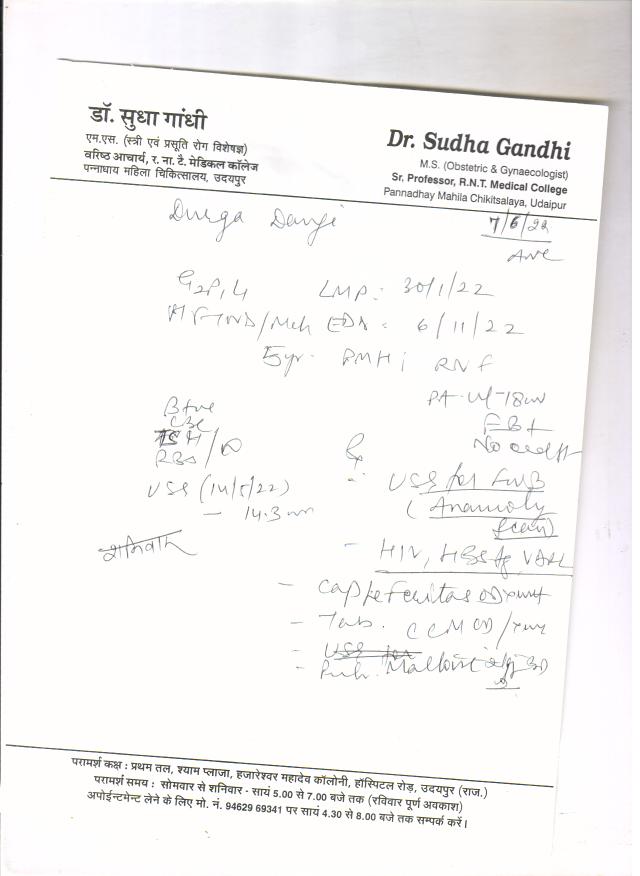 डॉ. सुधा गांधी
एम.एस. (स्त्री एवं प्रसूति रोग विशेषज्ञ)
वरिष्ठ आचार्य, र. ना. टै. मेडिकल कॉलेज
पन्नाधाय महिला चिकित्सालय, उदयपुर
Dr. Sudha Gandhi
M.S. (Obstetric & Gynaecologist)
Sr. Professor, R.N.T. Medical College
Pannadhay Mahila Chikitsalaya, Udaipur
Durga Dangi
7/6/22
ANC
G2P1L1 LMP: 30/1/22
EDD = 6/11/22
5yr.
PA - Ut - 18w
B+ve
CBC
TSH
RBS
USG (14/5/22)
- 14.3
USG for FWB
(Anamoly
Scan)
- HIV, HBSAg, VDRL
- Cap
- Tab. CCM OD
- USG for
शनिवार
परामर्श कक्ष : प्रथम तल, श्याम प्लाजा, हजारेश्वर महादेव कॉलोनी, हॉस्पिटल रोड़, उदयपुर (राज.)
परामर्श समय : सोमवार से शनिवार - सायं 5.00 से 7.00 बजे तक (रविवार पूर्ण अवकाश)
अपोईन्टमेन्ट लेने के लिए मो. नं. 94629 69341 पर सायं 4.30 से 8.00 बजे तक सम्पर्क करें।